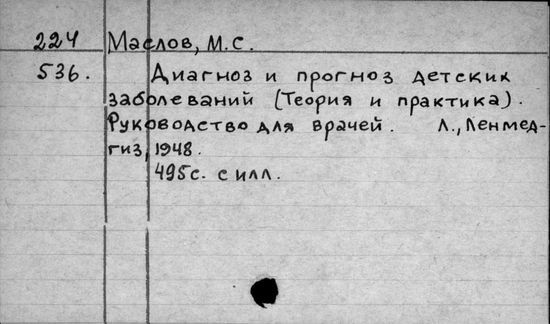 224 Маслов, М.С.
536. Диагноз и прогноз детских
заболеваний (Теория и практика).
Руководство для врачей. Л., Ленмед-
гиз, 1948.
495с. с илл.